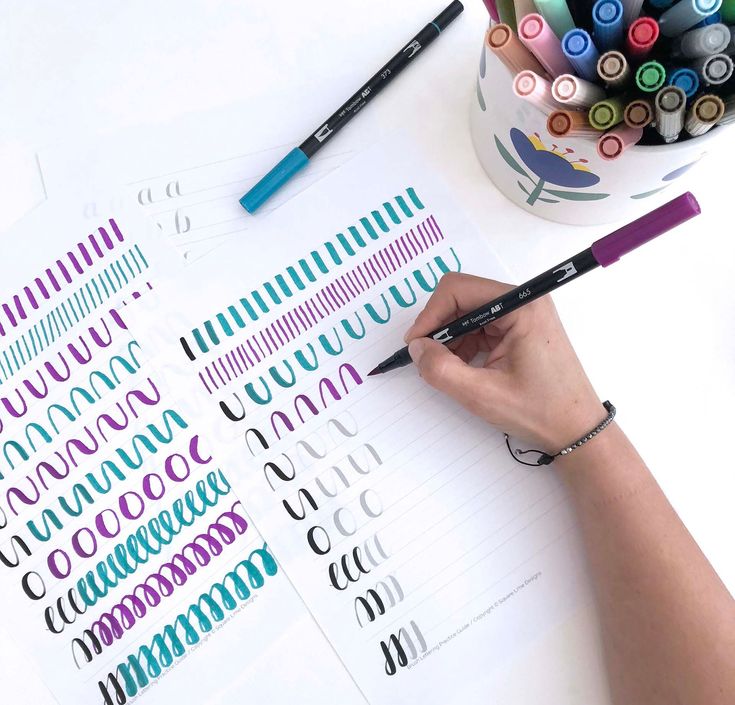 373
Tombow ABT
a a a
b
665
Tombow ABT
Brush Lettering Practice Guide / Copyright © Square Lime Designs
Brush Lettering Practice Guide / Copyright © Square Lime Designs